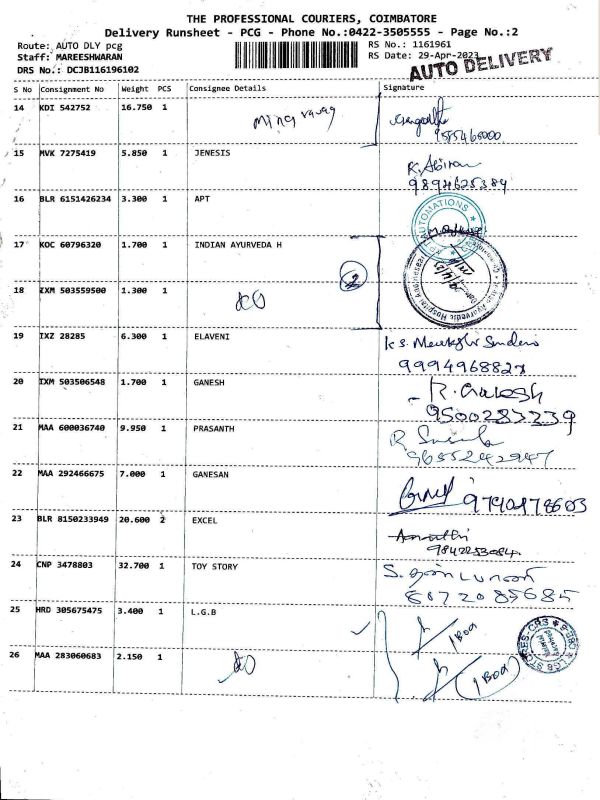 THE PROFESSIONAL COURIERS, COIMBATORE
Delivery Runsheet - PCG - Phone No.:0422-3505555 - Page No.:2
Route: AUTO DLY pcg
RS No.: 1161961
Staff: MAREESHWARAN
RS Date: 29-Apr-2023
DRS No.: DCJB116196102
AUTO DELIVERY
S No Consignment No Weight PCS Consignee Details Signature
14 KDI 542752 16.750 1
15 MVK 7275419 5.850 1 JENESIS
9894625384
16 BLR 6151426234 3.300 1 APT
AUTOMATIONS
17 KOC 60796320 1.700 1 INDIAN AYURVEDA H
2
18 IXM 503559500 1.300 1
19 IXZ 28285 6.300 1 ELAVENI
20 IXM 503506548 1.700 1 GANESH
9500283239
21 MAA 600036740 9.950 1 PRASANTH
9655242947
22 MAA 292466675 7.000 1 GANESAN
23 BLR 8150233949 20.600 2 EXCEL
24 CNP 3478803 32.700 1 TOY STORY
25 HRD 305675475 3.400 1 L.G.B
26 MAA 283060683 2.150 1